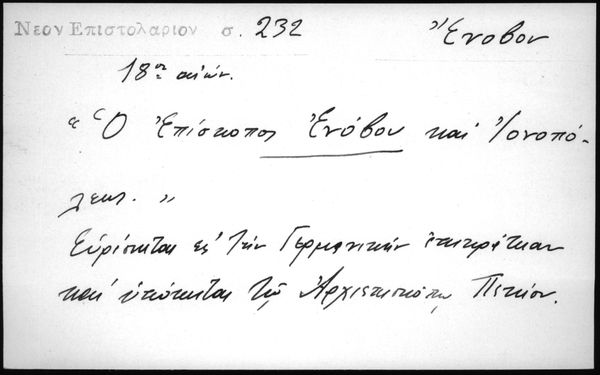 Νεον Επιστολαριον σ. 232 Ἔνοβον
18ος αιών.
"Ὁ Ἐπίσκοπος Ἐνόβου καὶ Ἰονοπό-
λεως."
Εὑρίσκεται εἰς τὴν Γερμανικὴν ἐπικράτειαν
καὶ ὑπόκειται τῷ Ἀρχιεπισκόπῳ Πεκίου.